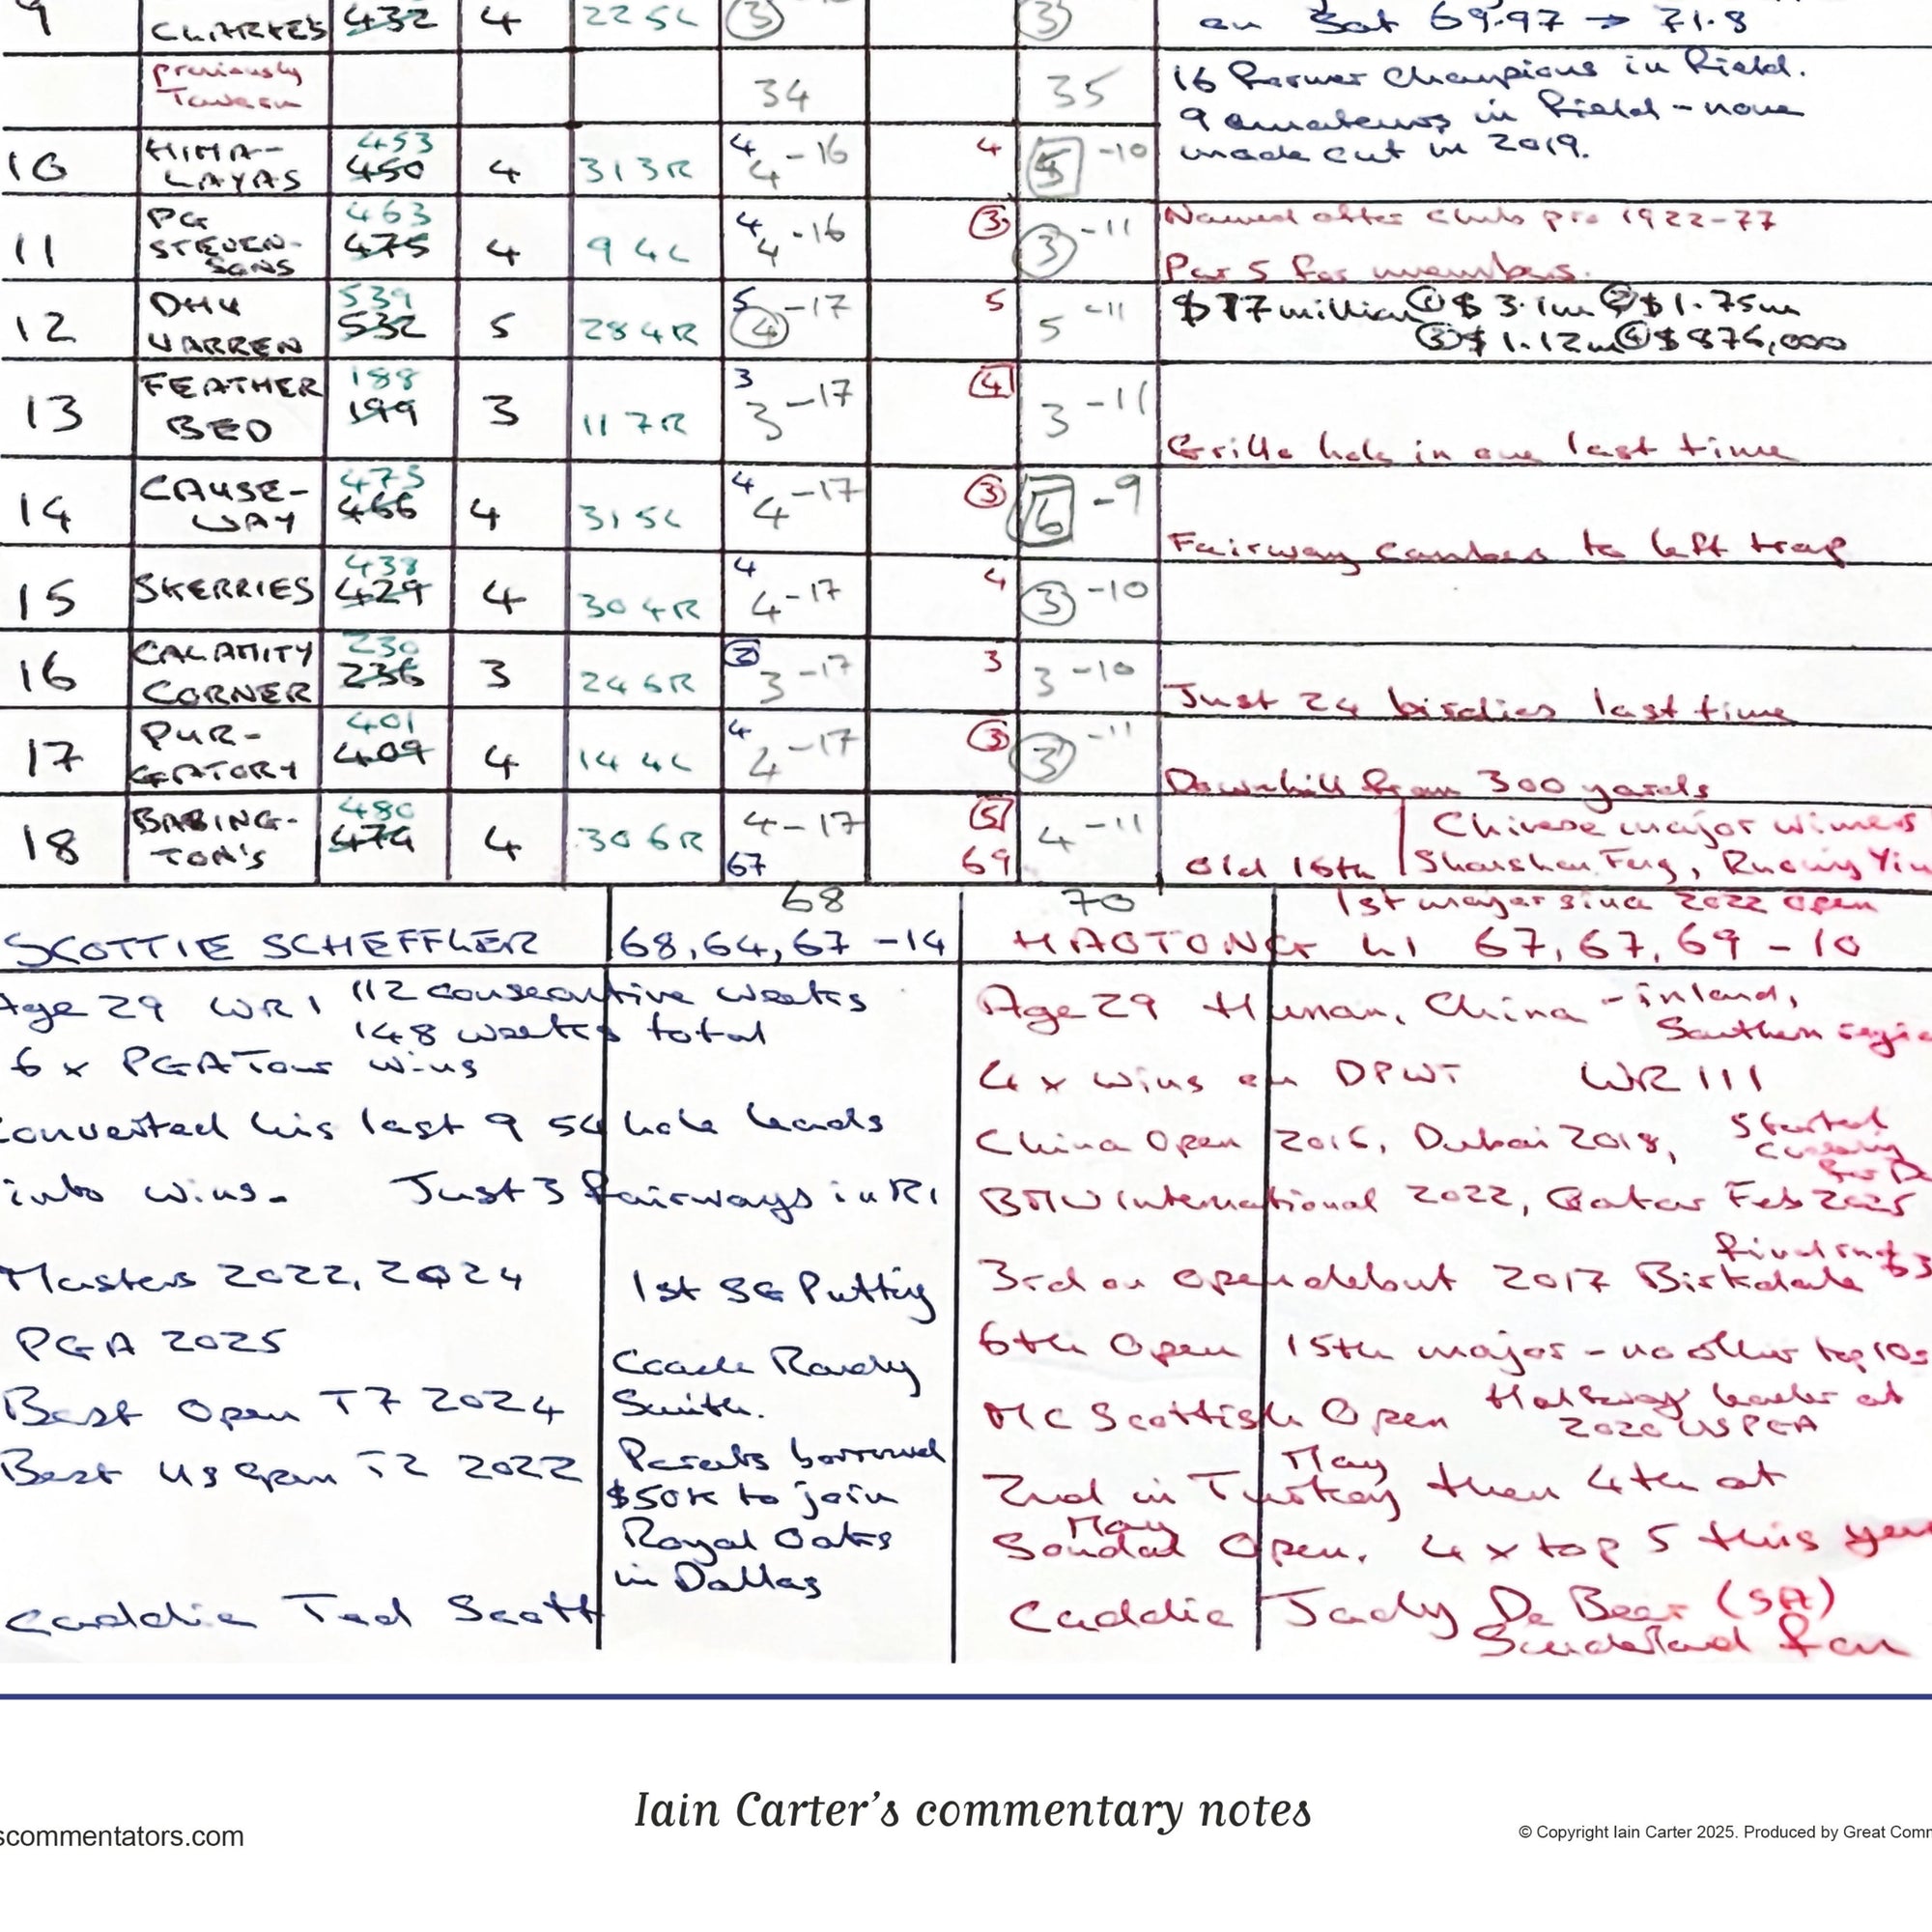 9 CLARKE'S 432 4 225L 3 3 on Sat 69.97 → 71.8
previously 34 35 16 former champions in field.
9 amateurs in field - none
made cut in 2019.
10 HIMA-LAYAS 453 450 4 313R 4 4 -16 4 5 -10
11 PG STEVEN-SONS 463 475 4 94L 4 4 -16 3 3 -11 Named after club pro 1922-77
Par 5 for members.
12 DHU VARREN 539 532 5 284R 5 4 -17 5 5 -11 $17 million ① $3.1m ② $1.75m
③ $1.12m ④ $876,000
13 FEATHER BED 188 199 3 117R 3 3 -17 4 3 -11 Grillo hole in one last time
14 CAUSE-WAY 473 466 4 315L 4 4 -17 3 6 -9 Fairway cambers to left trap
15 SKERRIES 438 429 4 304R 4 4 -17 4 3 -10
16 CALAMITY CORNER 230 236 3 246R 2 3 -17 3 3 -10 Just 24 birdies last time
17 PUR-GATORY 401 409 4 144L 4 4 -17 3 3 -11 Downhill from 300 yards
18 BABING-TON'S 480 474 4 306R 4 -17 67 5 69 4 -11 Old 16th Chinese major winners
Shanshan Feng, Ruoning Yin
68 70 1st major since 2022 Open
SCOTTIE SCHEFFLER 68, 64, 67 -14 HAOTONG LI 67, 67, 69 -10
Age 29 WR1 112 consecutive weeks
148 weeks total
6 x PGA Tour wins
Converted his last 9 54 hole leads
into wins. Just 3 fairways in R1
Masters 2022, 2024
PGA 2025
Best Open T7 2024
Best US Open T2 2022
Caddie Ted Scott
1st SG Putting
Coach Randy
Smith.
Parents borrowed
$50K to join
Royal Oaks
in Dallas
Age 29 Hunan, China - inland,
Southern
4 x wins on DPWT WR 111
China Open 2016, Dubai 2018, Started
BMW International 2022, Qatar Feb 2025
3rd on Open debut 2017 Birkdale final rnd 63
6th Open 15th major - no other top 10s
MC Scottish Open Halfway leader at
2020 USPGA
2nd in Turkey May then 4th at
Soudal Open. May 4 x top 5 this year
Caddie Jady De Beer (SA)
Sunderland fan
Iain Carter's commentary notes
scommentators.com
© Copyright Iain Carter 2025. Produced by Great Comm